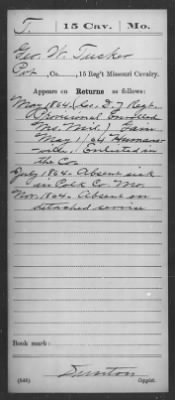 T. 15 Cav. Mo.
Geo. W. Tucker
Pvt, Co. , 15 Reg't Missouri Cavalry.
Appears on Returns as follows:
May 1864, Co. D. 7 Regt.
Provisional Enrolled
Mo. Mil.
May 1/64 Humans-
ville, Enlisted in
the Co.
July 1864. Absent sick
in Polk Co. Mo.
Nov. 1864. Absent on
detached service
Book mark:
(546) Copyist.